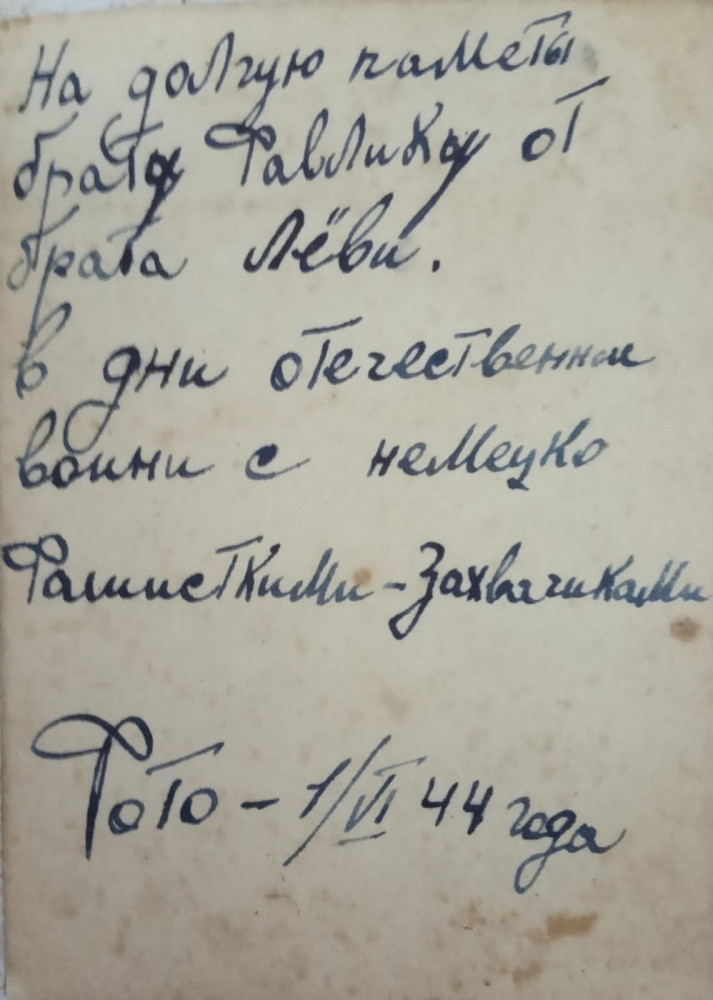 На долгую паметы
брату Фавлику от
брата Лёви.
в дни отечественни
воини с немецко
Фашисткими-Захвачиками
Фото - 1/VI 44 года